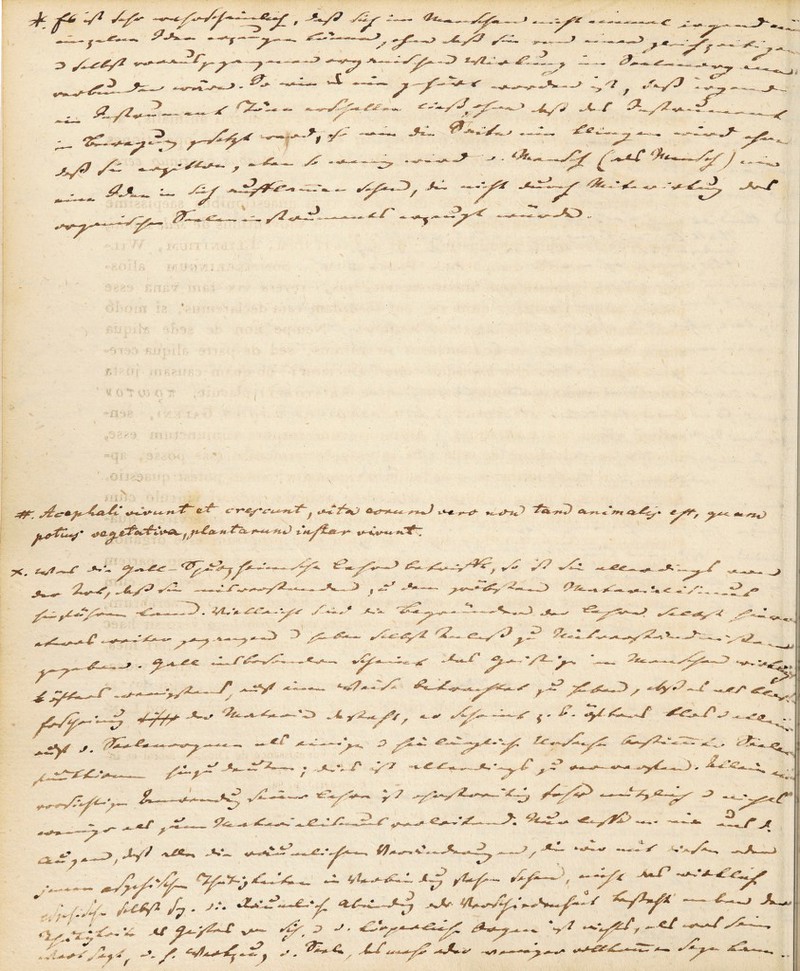 * Es ist sehr wahrscheinlich, daß sich im Menschen nicht einmal irgend eine
einzelne Idee erzeugen könne, ohne daß sie von einer gleichzeitigen
selbst vorausgegangenen organischen Wirkung im Seelenorgan
verbunden wäre. So wie nie gehört worden ist, daß irgend
ein Instrument Töne erschallen ließ, ohne daß das Instrument
in Bewegung gesetzt ward, so wie die Saite nie klingen wird ohne
daß sie erzittere, eben so wenig wird d. Mensch (als Mensch) nie
eine Idee in sich aufkommen sehen, die nicht durch Mitwirkung des
organischen Seeleninstruments erzeugt würde.
#. Acephali vivunt et crescunt, vita eorum vero non tam animalis est, quam
potius vegetativa, plantarum instar vivunt.
x. Was die Gall-Spurzheimische Lehre betrifft, so ist sie allerdings von
der Art, daß sie misverstanden, zu dem gröbsten Materialismus
hinführen kann. Vielleicht sind die Begründer der Lehre selbst hierin
etwas weiter gegangen haben selbst Anlaß zu Misverständnissen
gegeben. Gall insbesondere scheint das Geistige im Menschen
öfters wenigstens, auf eine Weise betrachtet zu haben, als
der Materie er scheint z. B. öfters blos allein
auf d. Seelenorgane als einzige hinlängliche Ursache bestimmter Seelen
hinzudeuten; dies ist allerdings zu verwerfen. Allein
vorsichtige Anwendung seiner Lehre ist sehr nützlich nichts
weniger als zum Materialismus verleitend. Nur lasse man nie aus d.
Augen, daß alle die räumlichen Veränderungen, die wir mit diesen oder
jenen psychischen Thätigkeiten in Verbindung stehen sehen, nicht das wirklich
psychische selbst die räumliche oder Verschiedenheit besteht neben der
Thätigkeit des Geistes an sich, d. körperliche Organ ist nichts, als was sein
Wort sagt, d. h. Werkzeug d. Seele, das mehr oder weniger vollkommen seyn kann.